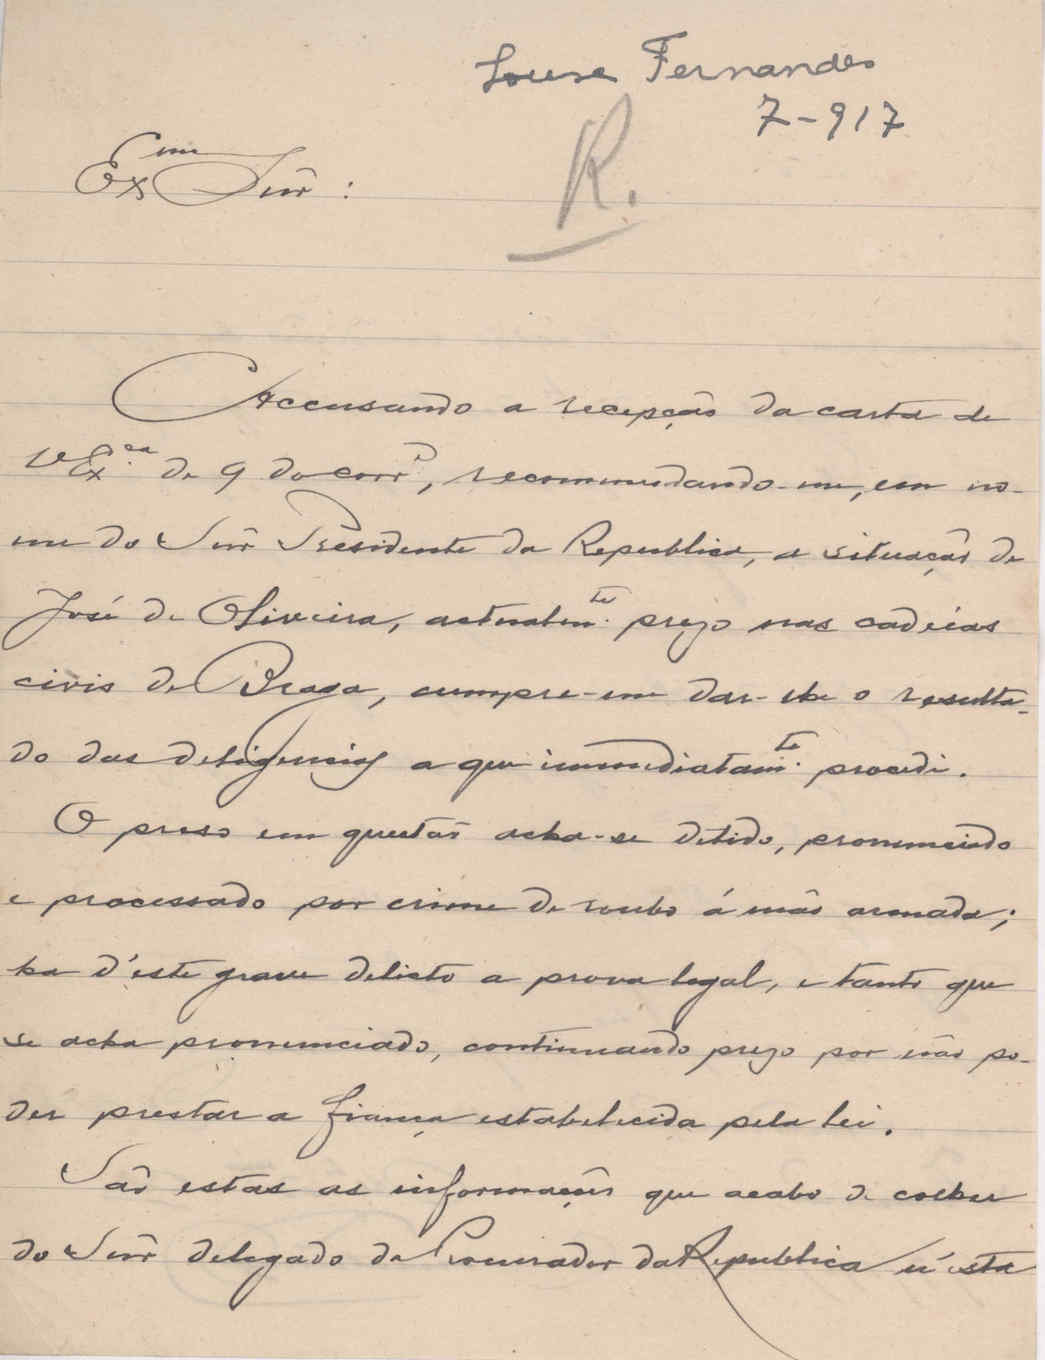 Sousa Fernandes
7-917
R.
Exmo Snr :
Accusando a recepção da carta de
V Exca. de 9 do corre, recommendando-me, em no-
me do Snr Presidente da Republica, a situação de
José de Oliveira, actualmte. prezo nas cadeias
civis de Braga, cumpre-me dar-lhe o resulta-
do das deligencias a que immediatamte. procedi.
O preso em questão acha-se detido, pronunciado
e processado por crime de roubo á mão armada;
ha d'este grave delicto a prova legal, e tanto que
se acha pronunciado, continuando prezo por não po-
der prestar a fiança estabelecida pela lei.
São estas as informações que acabo de colher
do Snr delegado do Procurador da Republica n'esta